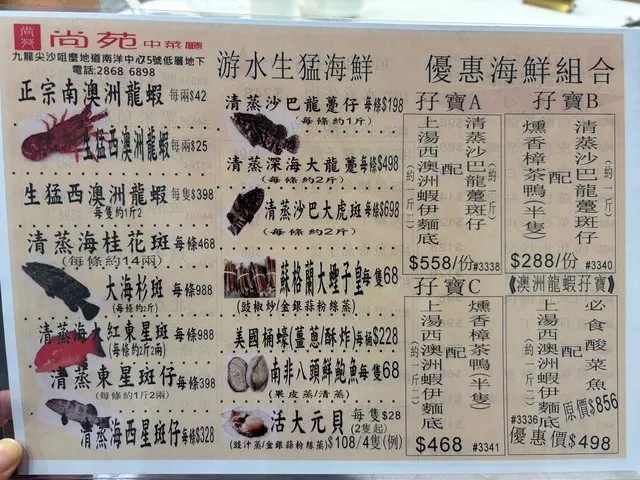 尚苑
尚苑 中菜廳
九龍尖沙咀麼地道南洋中心75號低層地下
電話:2868 6898
正宗南澳洲龍蝦 每両$42
生猛西澳洲龍蝦 每両$25
生猛西澳洲龍蝦 每隻$398
每隻約1斤2
清蒸海桂花斑 每條468
(每條約14兩)
大海杉斑 每條988
清蒸海水紅東星斑 每條988
(每條約1斤2兩)
清蒸東星斑仔 每條398
(每條約1斤2兩)
清蒸海西星斑仔 每條$328
游水生猛海鮮
清蒸沙巴龍躉仔 每條$198
(每條約1斤)
清蒸深海大龍躉 每條$498
(每條約2斤)
清蒸沙巴大虎斑 每條$698
(每條約2斤)
蘇格蘭大蟶子皇 每隻68
(豉椒炒/金銀蒜粉絲蒸)
美國桶蠔(薑蔥/酥炸) 每桶$228
南非八頭鮮鮑魚 每隻68
(果皮蒸/清蒸)
活大元貝 每隻$28
(2隻起)
(豉汁蒸/金銀蒜粉絲蒸) $108/4隻(例)
優惠海鮮組合
孖寶A
清蒸沙巴龍躉斑仔(約一斤)
配
上湯西澳洲蝦伊麵底(約一斤二)
$558/份 #3338
孖寶B
清蒸沙巴龍躉斑仔(約一斤)
配
燻香樟茶鴨(半隻)
$288/份 #3340
孖寶C
燻香樟茶鴨(半隻)
配
上湯西澳洲蝦伊麵底(約一斤二)
$468 #3341
《澳洲龍蝦孖寶》
必食酸菜魚
配
上湯西澳洲蝦伊麵底(約一斤二)
原價$856
#3336
優惠價$498